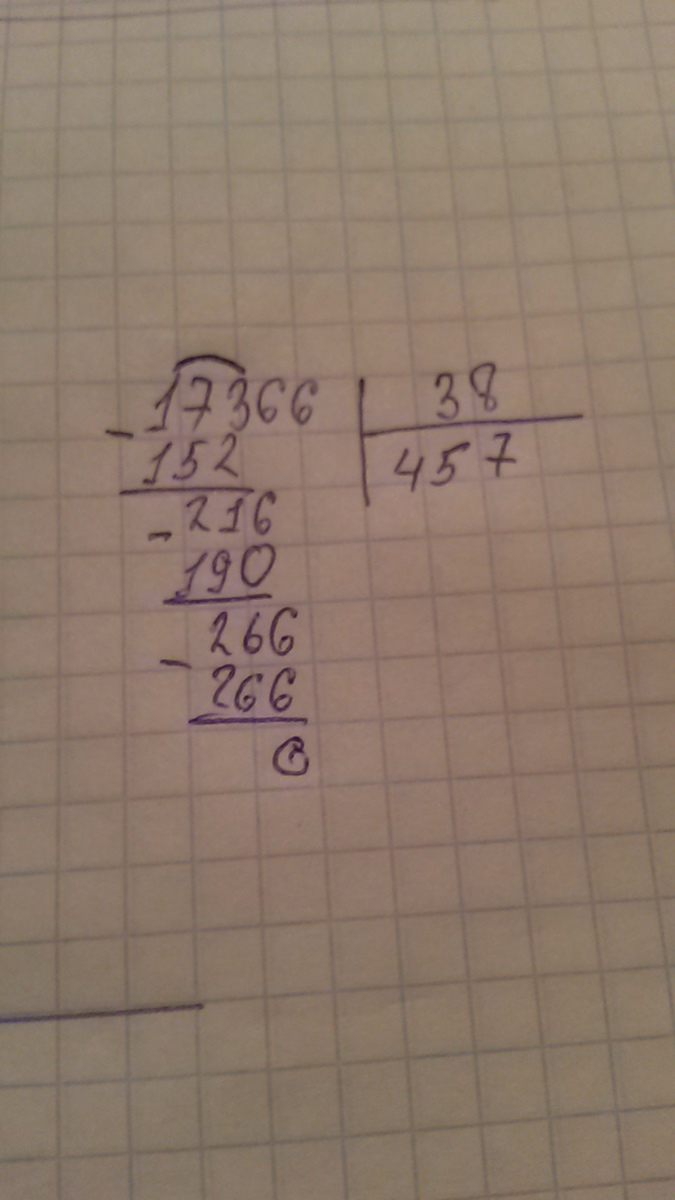 17366 | 38
- 152 | 457
- 216
190
- 266
266
0